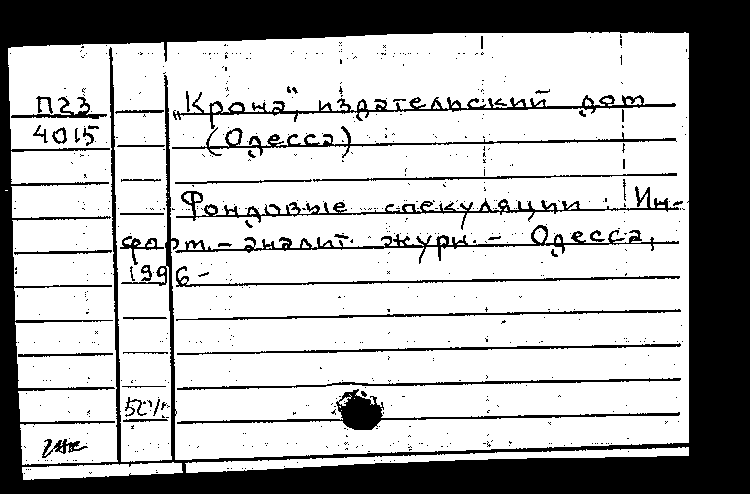 П23
4015
„Крона", издательский дом
(Одесса)
Фондовые спекуляции : Ин-
форм.-аналит. журн. - Одесса,
1996-